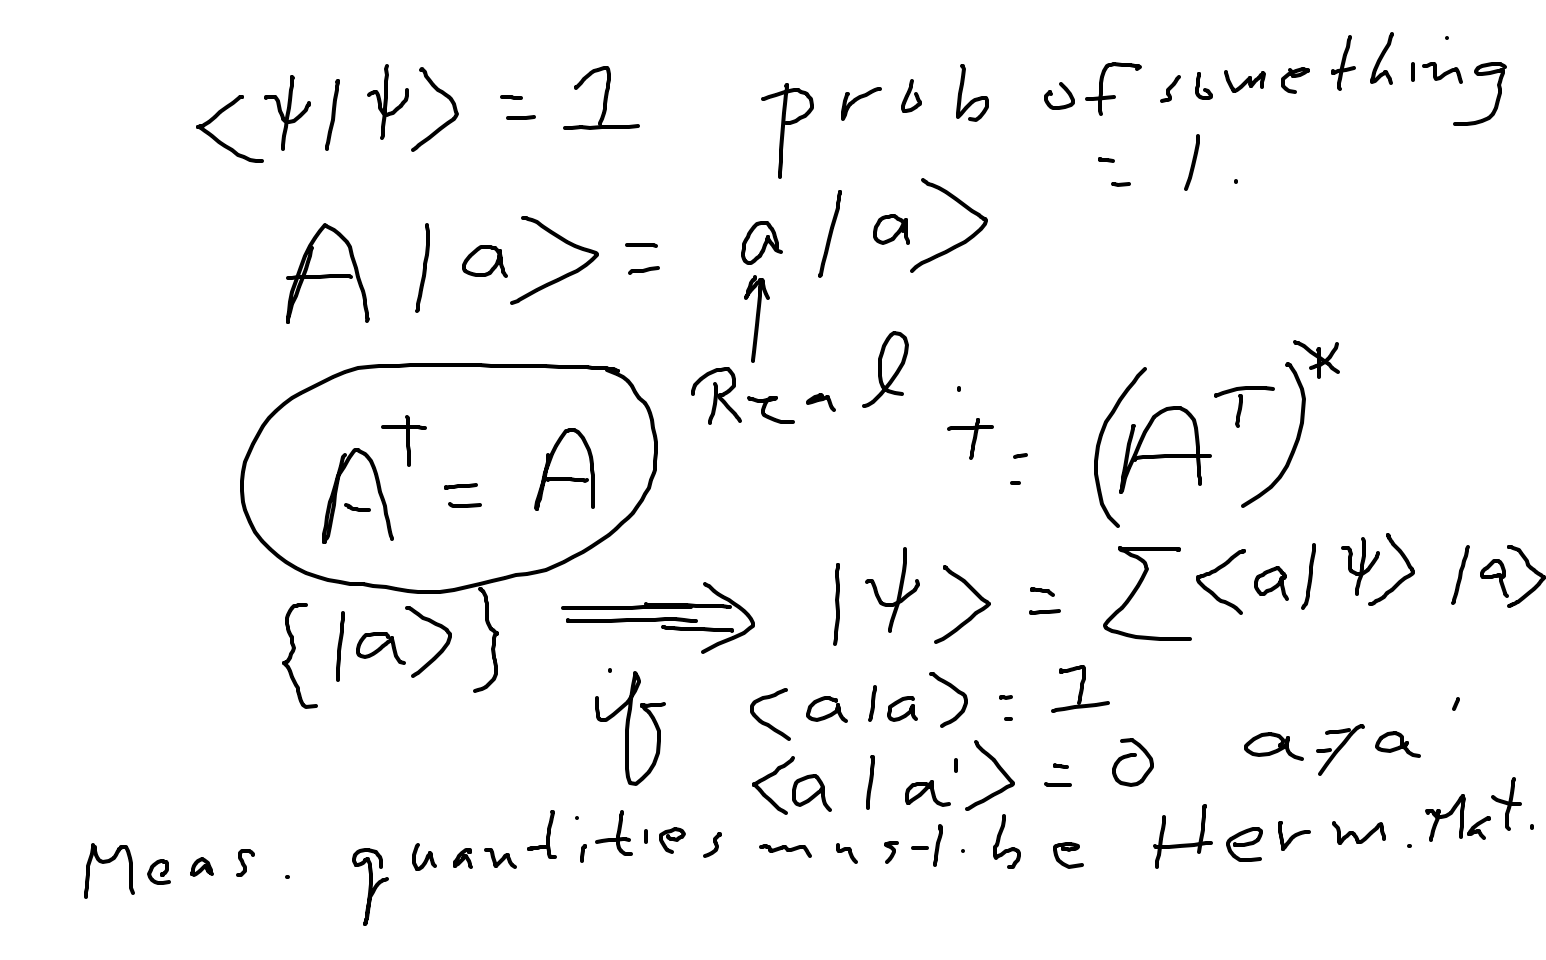 <ψ|ψ> = 1 prob of something
= 1.
A |a> = a |a>
↑
Real
A† = A † = (Aᵀ)*
{|a>} ⟹ |ψ> = Σ <a|ψ> |a>
if <a|a> = 1
<a|a'> = 0 a ≠ a'
Meas. quantities must be Herm. Mat.